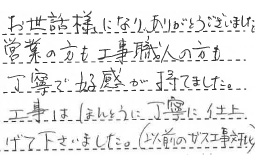 お世話様になり、ありがとうございました
営業の方も工事職人の方も
丁寧で好感が持てました。
工事はほんとうに丁寧に仕上
げて下さいました。(以前のガス工事対比)